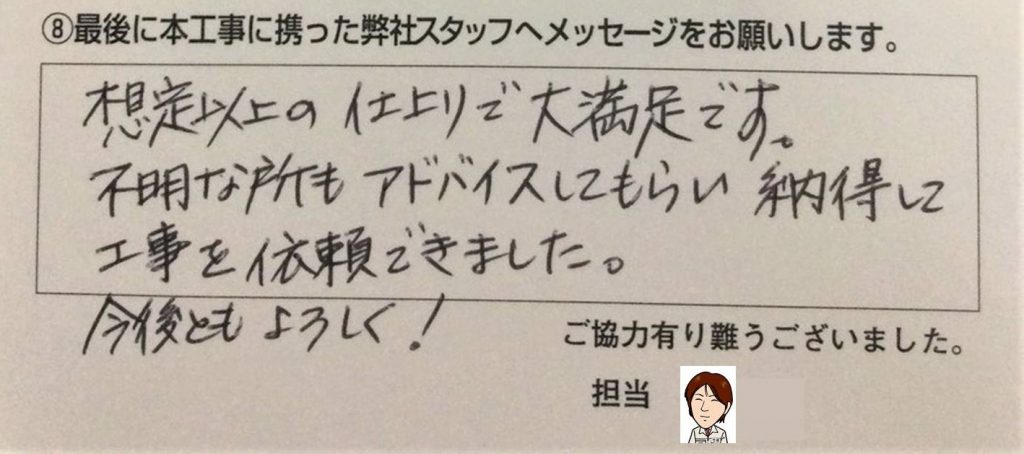 ⑧最後に本工事に携った弊社スタッフへメッセージをお願いします。
想定以上の仕上りで大満足です。
不明な所もアドバイスしてもらい納得して
工事を依頼できました。
今後ともよろしく!
ご協力有り難うございました。
担当